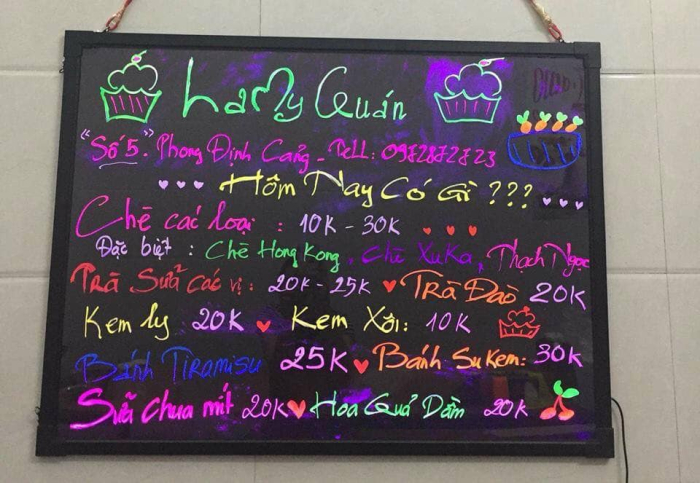 LaMy Quán
"Số 5". Phong Định Cảng - Tell: 0972872723
Hôm Nay Có Gì ???
Chè các loại : 10K - 30K
Đặc biệt : Chè Hong Kong, Chè XuKa, Thạch Ngọc
Trà Sữa các vị : 20K - 25K Trà Đào 20K
Kem ly 20K Kem Xôi: 10K
Bánh Tiramisu 25K Bánh Su Kem: 30K
Sữa chua mít 20K Hoa Quả Dầm 20K